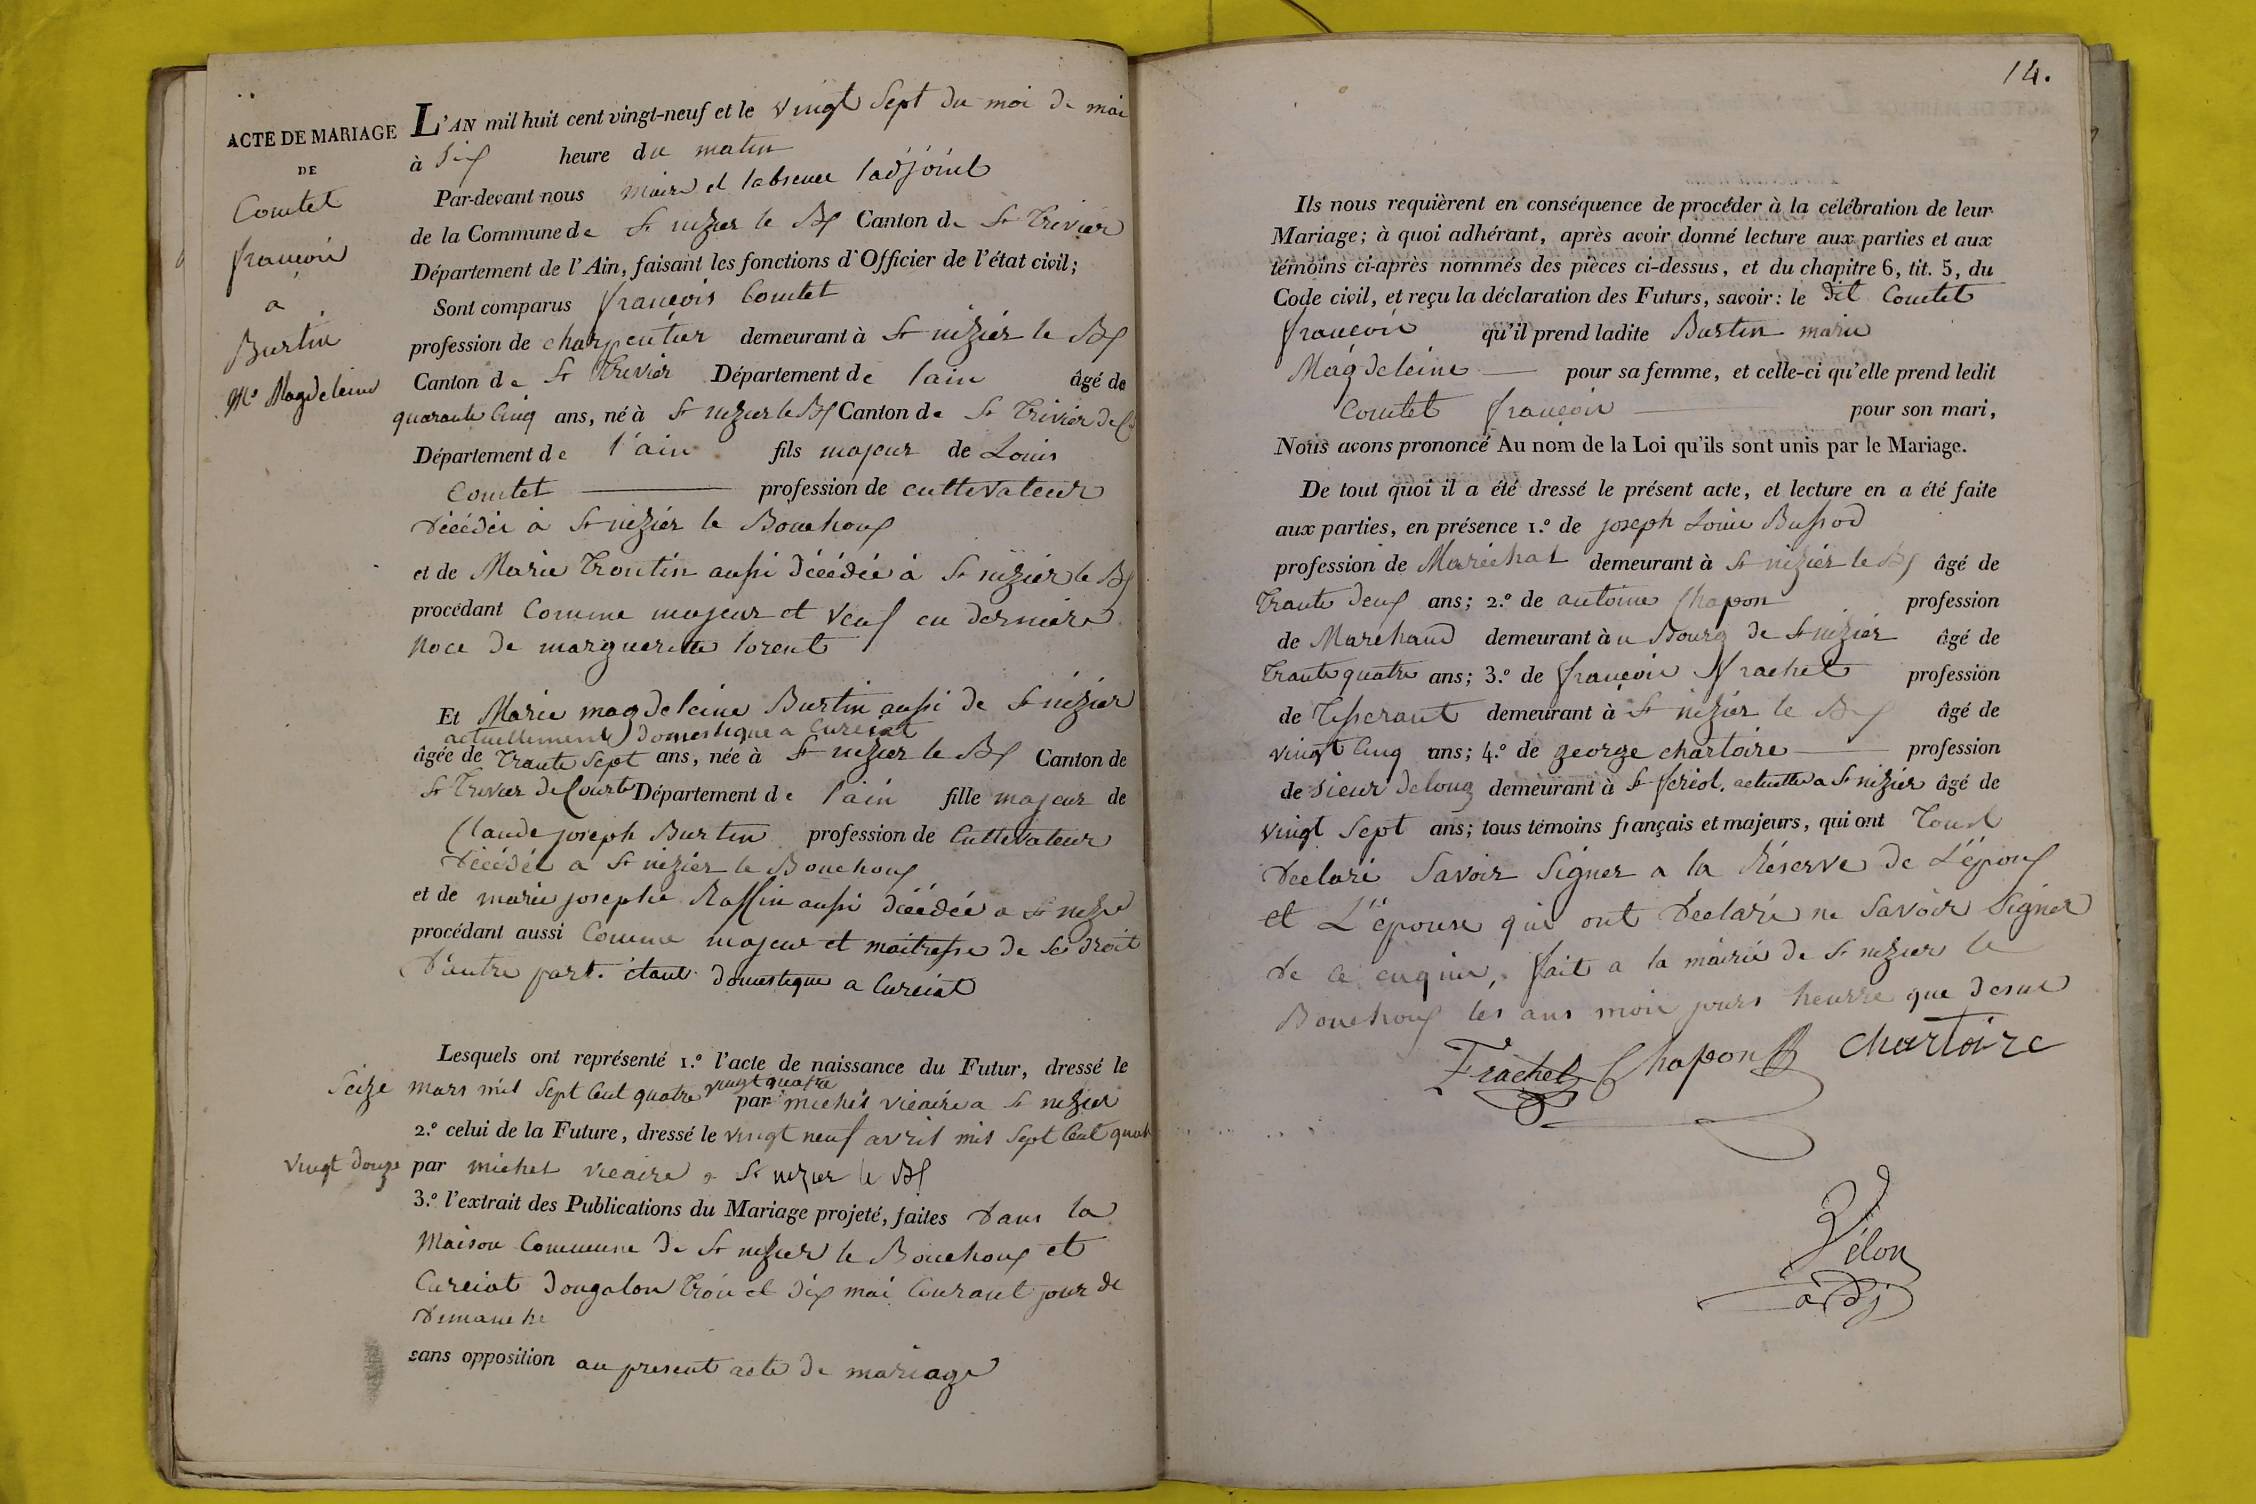 ACTE DE MARIAGE
DE
Comtet
françois
a
Burtin
Mie Magdeleine
L'AN mil huit cent vingt-neuf et le vingt sept du moi de mai
à six heure du matin
Par-devant nous maire et labsence ladjoint
de la Commune de St nizier le Bx Canton de St Trivier
Département de l'Ain, faisant les fonctions d'Officier de l'état civil;
Sont comparus françois Comtet
profession de charpentier demeurant à St nizier le Bx
Canton de St Trivier Département de lain âgé de
quarante cinq ans, né à St nizier le Bx Canton de St Trivier de C
Département de l'ain fils majeur de Louis
Comtet profession de cultivateur
décédé à St nizier le Bouchoux
et de Marie Troutin aussi décédée à St nizier le Bx
procédant comme majeur et veuf en derniere
noce de marguerite lorent
Et Marie magdeleine Burtin aussi de St nizier
actuellement domestique a Curciat
âgée de trante sept ans, née à St nizier le Bx Canton de
St Trivier de Courte Département de l'ain fille majeur de
Claude joseph Burtin profession de cultivateur
décédé a St nizier le Bouchoux
et de marie josephe Raffin aussi décédée a St nizie
procédant aussi comme majeur et maitresse de se droit
d'autre part. étant domestique a Curciat
Lesquels ont représenté 1.º l'acte de naissance du Futur, dressé le
seize mars mil sept cent quatre vingt quatre par michel vicaire a St nizier
2.º celui de la Future, dressé le vingt neuf avril mil sept cent quat
vingt douze par michel vicaire a St nizier le Bx
3.º l'extrait des Publications du Mariage projeté, faites dans la
maison commune de St nizier le Bouchoux et
Curciat dongalon troi et dix mai courant jour de
dimanche
sans opposition au present acte de mariage
14.
Ils nous requièrent en conséquence de procéder à la célébration de leur
Mariage; à quoi adhérant, après avoir donné lecture aux parties et aux
témoins ci-après nommés des pièces ci-dessus, et du chapitre 6, tit. 5, du
Code civil, et reçu la déclaration des Futurs, savoir: le dit Comtet
françois qu'il prend ladite Burtin marie
Magdeleine pour sa femme, et celle-ci qu'elle prend ledit
Comtet françois pour son mari,
Nous avons prononcé Au nom de la Loi qu'ils sont unis par le Mariage.
De tout quoi il a été dressé le présent acte, et lecture en a été faite
aux parties, en présence 1.º de joseph Louis Bussod
profession de Maréchal demeurant à St nizier le Bx âgé de
trante deux ans; 2.º de antoine Chapon profession
de Marchand demeurant à u Bourg de St nizier âgé de
trante quatre ans; 3.º de françois frachet profession
de Tisserant demeurant à St nizier le Bx âgé de
vingt cinq ans; 4.º de george chartoire profession
de sieur de long demeurant à St feriol, actuelle a St nizier âgé de
vingt sept ans; tous témoins français et majeurs, qui ont tous
déclaré savoir signer a la réserve de L'époux
et L'épouse qui ont déclaré ne savoir signer
de ce enquis, fait a la mairie de St nizier le
Bouchoux les ans moi jours heurre que desus
Frachet Chapon chartoire
Vélon
adj